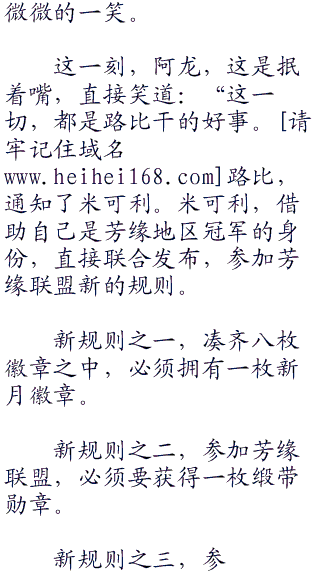 微微的一笑。
这一刻，阿龙，这是抿
着嘴，直接笑道：“这一
切，都是路比干的好事。[请
牢记住域名
www.heihei168.com]路比，
通知了米可利。米可利，借
助自己是芳缘地区冠军的身
份，直接联合发布，参加芳
缘联盟新的规则。
新规则之一，凑齐八枚
徽章之中，必须拥有一枚新
月徽章。
新规则之二，参加芳缘
联盟，必须要获得一枚缎带
勋章。
新规则之三，参